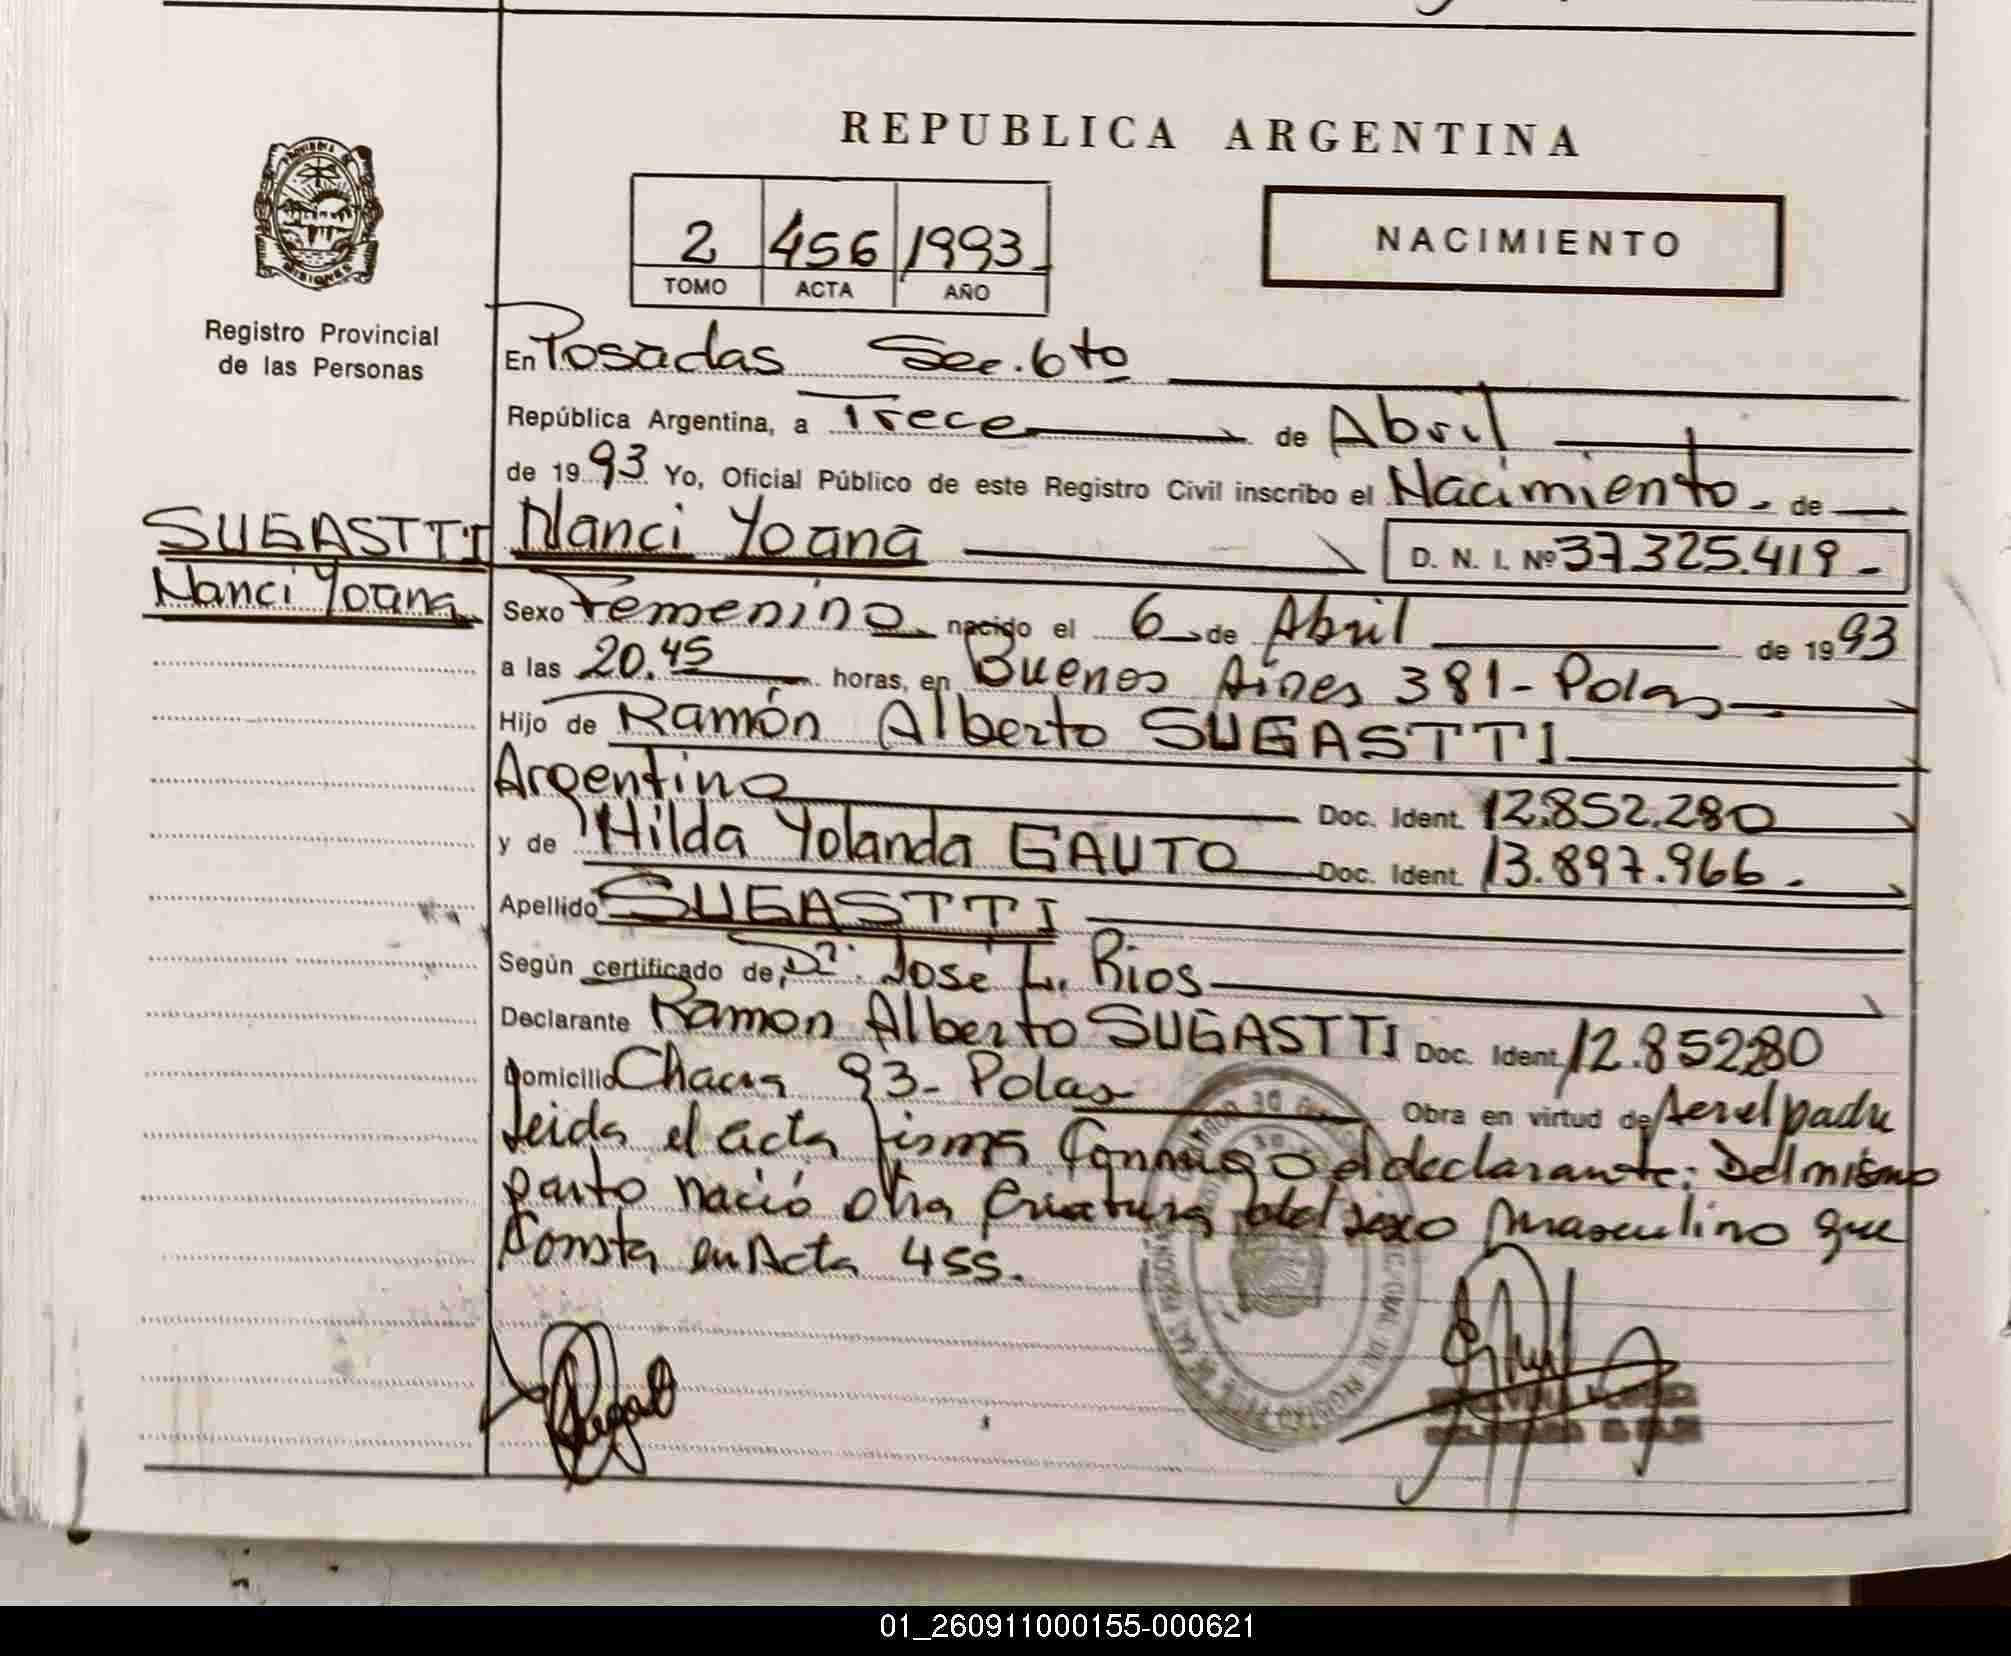 REPUBLICA ARGENTINA
2 456 1993
TOMO ACTA AÑO
NACIMIENTO
PROVINCIA DE
MISIONES
Registro Provincial
de las Personas
En Posadas Sec. 6to
República Argentina, a Trece de Abril
de 1993 Yo, Oficial Público de este Registro Civil inscribo el Nacimiento. de
SUGASTTI
Nanci Yoana
Nanci Yoana D. N. I. Nº 37.325.419 -
Sexo Femenino nacido el 6 de Abril de 1993
a las 20.45 horas, en Buenos Aires 381 - Polas
Hijo de Ramón Alberto SUGASTTI
Argentino Doc. Ident. 12.852.280
y de Hilda Yolanda GAUTO Doc. Ident. 13.897.966.
Apellido SUGASTTI
Según certificado de, Dr. José L. Rios
Declarante Ramon Alberto SUGASTTI Doc. Ident. 12.852280
Domicilio Chacra 93 - Polas Obra en virtud de ser el padre
Leida el acta firma Conmigo el declarante: Del mismo
parto nació otra Criatura del sexo masculino que
Consta en Acta 455.
01_260911000155-000621